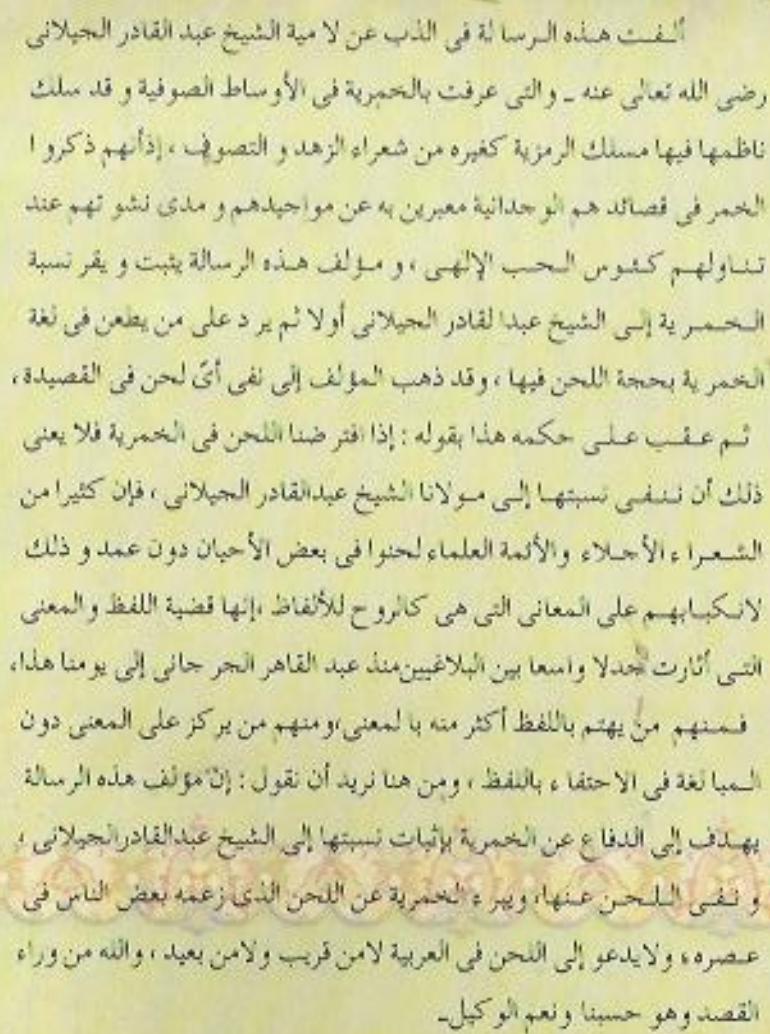 ألفت هذه الرسالة في الذب عن لامية الشيخ عبد القادر الجيلاني
رضى الله تعالى عنه ـ والتى عرفت بالخمرية فى الأوساط الصوفية و قد سلك
ناظمها فيها مسلك الرمزية كغيره من شعراء الزهد و التصوف ، إذأنهم ذكروا
الخمر فى قصائد هم الوحدانية معبرين به عن مواجيدهم و مدى نشو تهم عند
تناولهم كئوس الحب الإلهى ، و مؤلف هذه الرسالة يثبت و يقر نسبة
الخمرية إلى الشيخ عبدا لقادر الجيلانى أولا ثم يرد على من يطعن فى لغة
الخمرية بحجة اللحن فيها ، وقد ذهب المؤلف إلى نفى أىّ لحن فى القصيدة ،
ثم عقب على حكمه هذا بقوله : إذا افترضنا اللحن فى الخمرية فلا يعنى
ذلك أن ننفى نسبتها إلى مولانا الشيخ عبدالقادر الجيلانى ، فإن كثيرا من
الشعراء الأجلاء والأئمة العلماء لحنوا فى بعض الأحيان دون عمد و ذلك
لانكبابهم على المعانى التى هى كالروح للألفاظ ،إنها قضية اللفظ والمعنى
التى أثارت جدلا واسعا بين البلاغيين منذ عبد القاهر الجرجانى إلى يومنا هذا،
فمنهم من يهتم باللفظ أكثر منه با لمعنى،ومنهم من يركز على المعنى دون
المبا لغة فى الاحتفاء باللفظ ، ومن هنا نريد أن نقول : إنّ مؤلف هذه الرسالة
يهدف إلى الدفاع عن الخمرية بإثبات نسبتها إلى الشيخ عبدالقادرالجيلانى ،
و نفى اللحن عنها، ويبرء الخمرية عن اللحن الذى زعمه بعض الناس فى
عصره، ولايدعو إلى اللحن فى العربية لامن قريب ولامن بعيد ، والله من وراء
القصد وهو حسبنا ونعم الوكيل۔